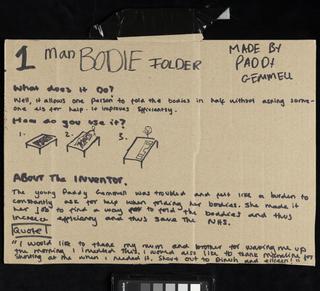 1 Man BODIE FOLDER
MADE BY
PADDY
GEMMELL
What does it Do?
Well, it allows one person to fold the bodies in half without asking some-
one els for help. it improves efficiently.
How do you use it?
1. 2. 3.
ABOUT THE INVENTOR.
The young Paddy Gemmell was troubled and felt like a burden to
constantly ask for help when folding her bodies. She made it
her job to find a way to fold the boddies and thus
increase efficiency and thus save the NHS.
Quote
"I would like to thank my mum and brother for waking me up
the morning I invented this. I would also like to thank
shouting at me when I needed it. Shout out to and